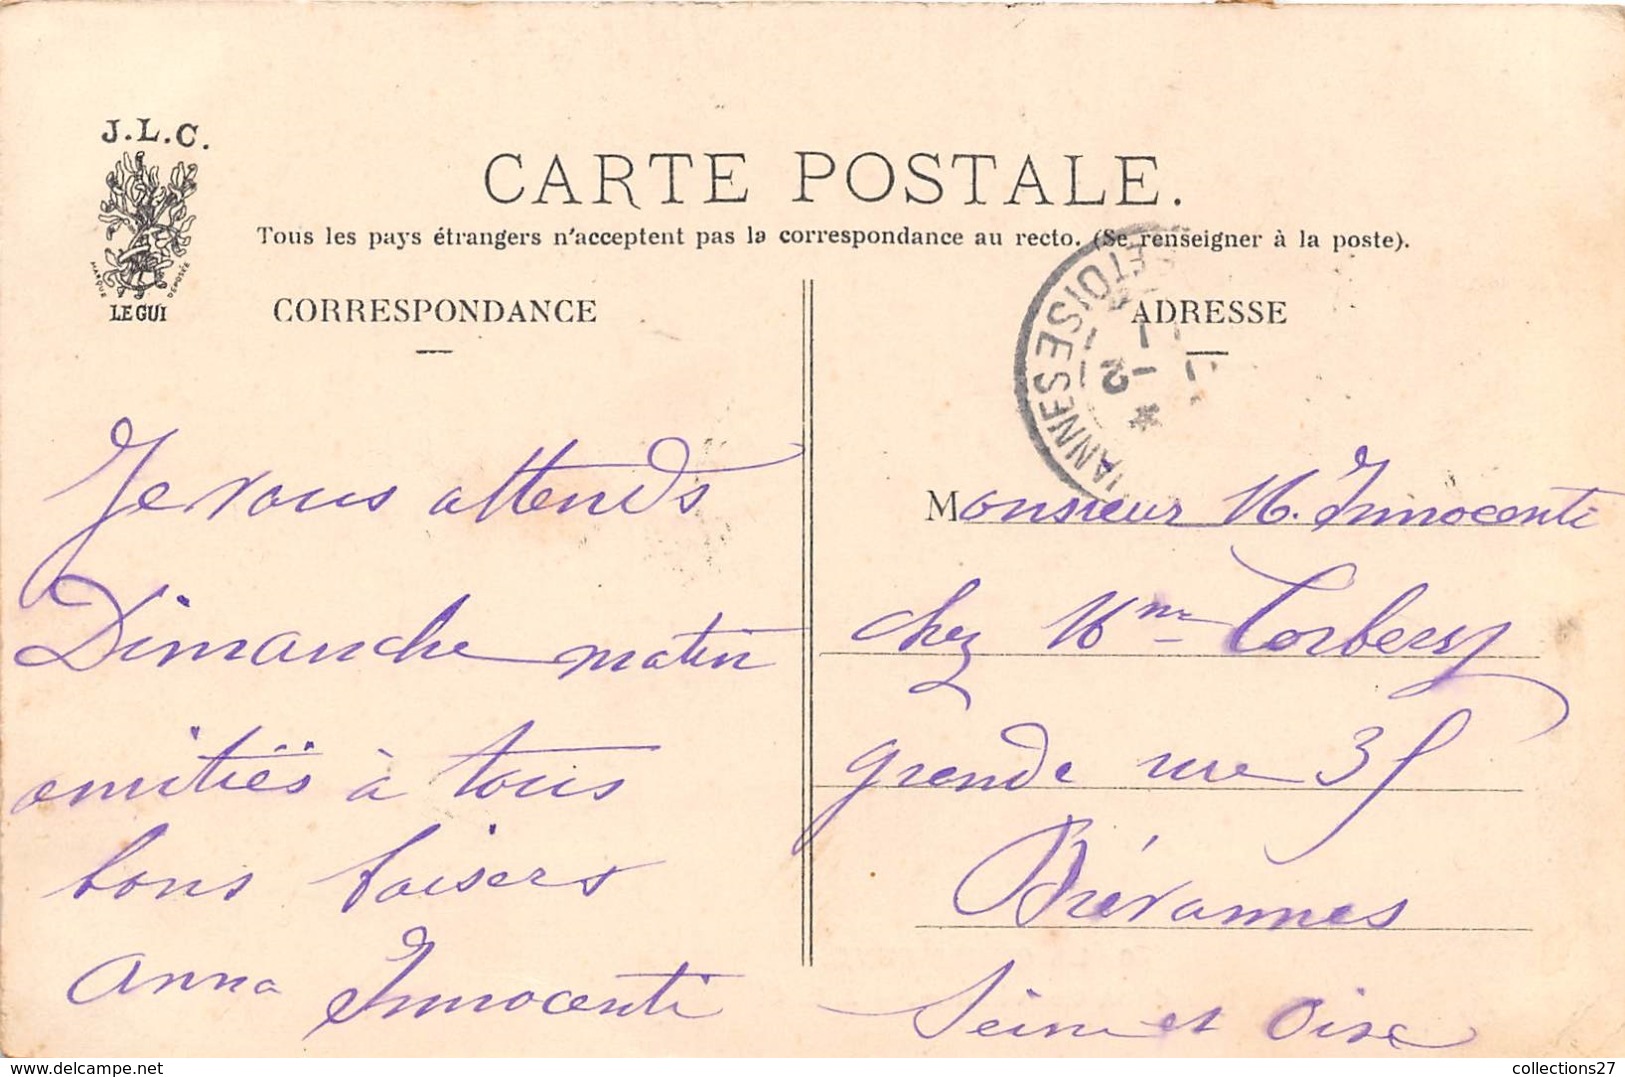 J.L.C.
MARQUE DÉPOSÉE
LE GUI
CARTE POSTALE.
Tous les pays étrangers n'acceptent pas la correspondance au recto. (Se renseigner à la poste).
CORRESPONDANCE
Je vous attends
Dimanche matin
amitiés à tous
bons baisers
Anna Innocenti
ADRESSE
ET OISE
Monsieur M. Innocenti
chez Mme Corbery
grande rue 35
Brévannes
Seine et Oise
collections27